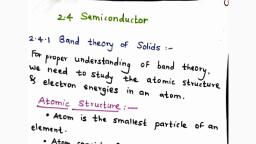 2.4 Semiconductor
2.4.1 Band theory of Solids :-
For proper understanding of band theory,
we need to study the atomic structure
& electron energies in an atom.
Atomic Structure :-
• Atom is the smallest particle of an
element.
• Atom